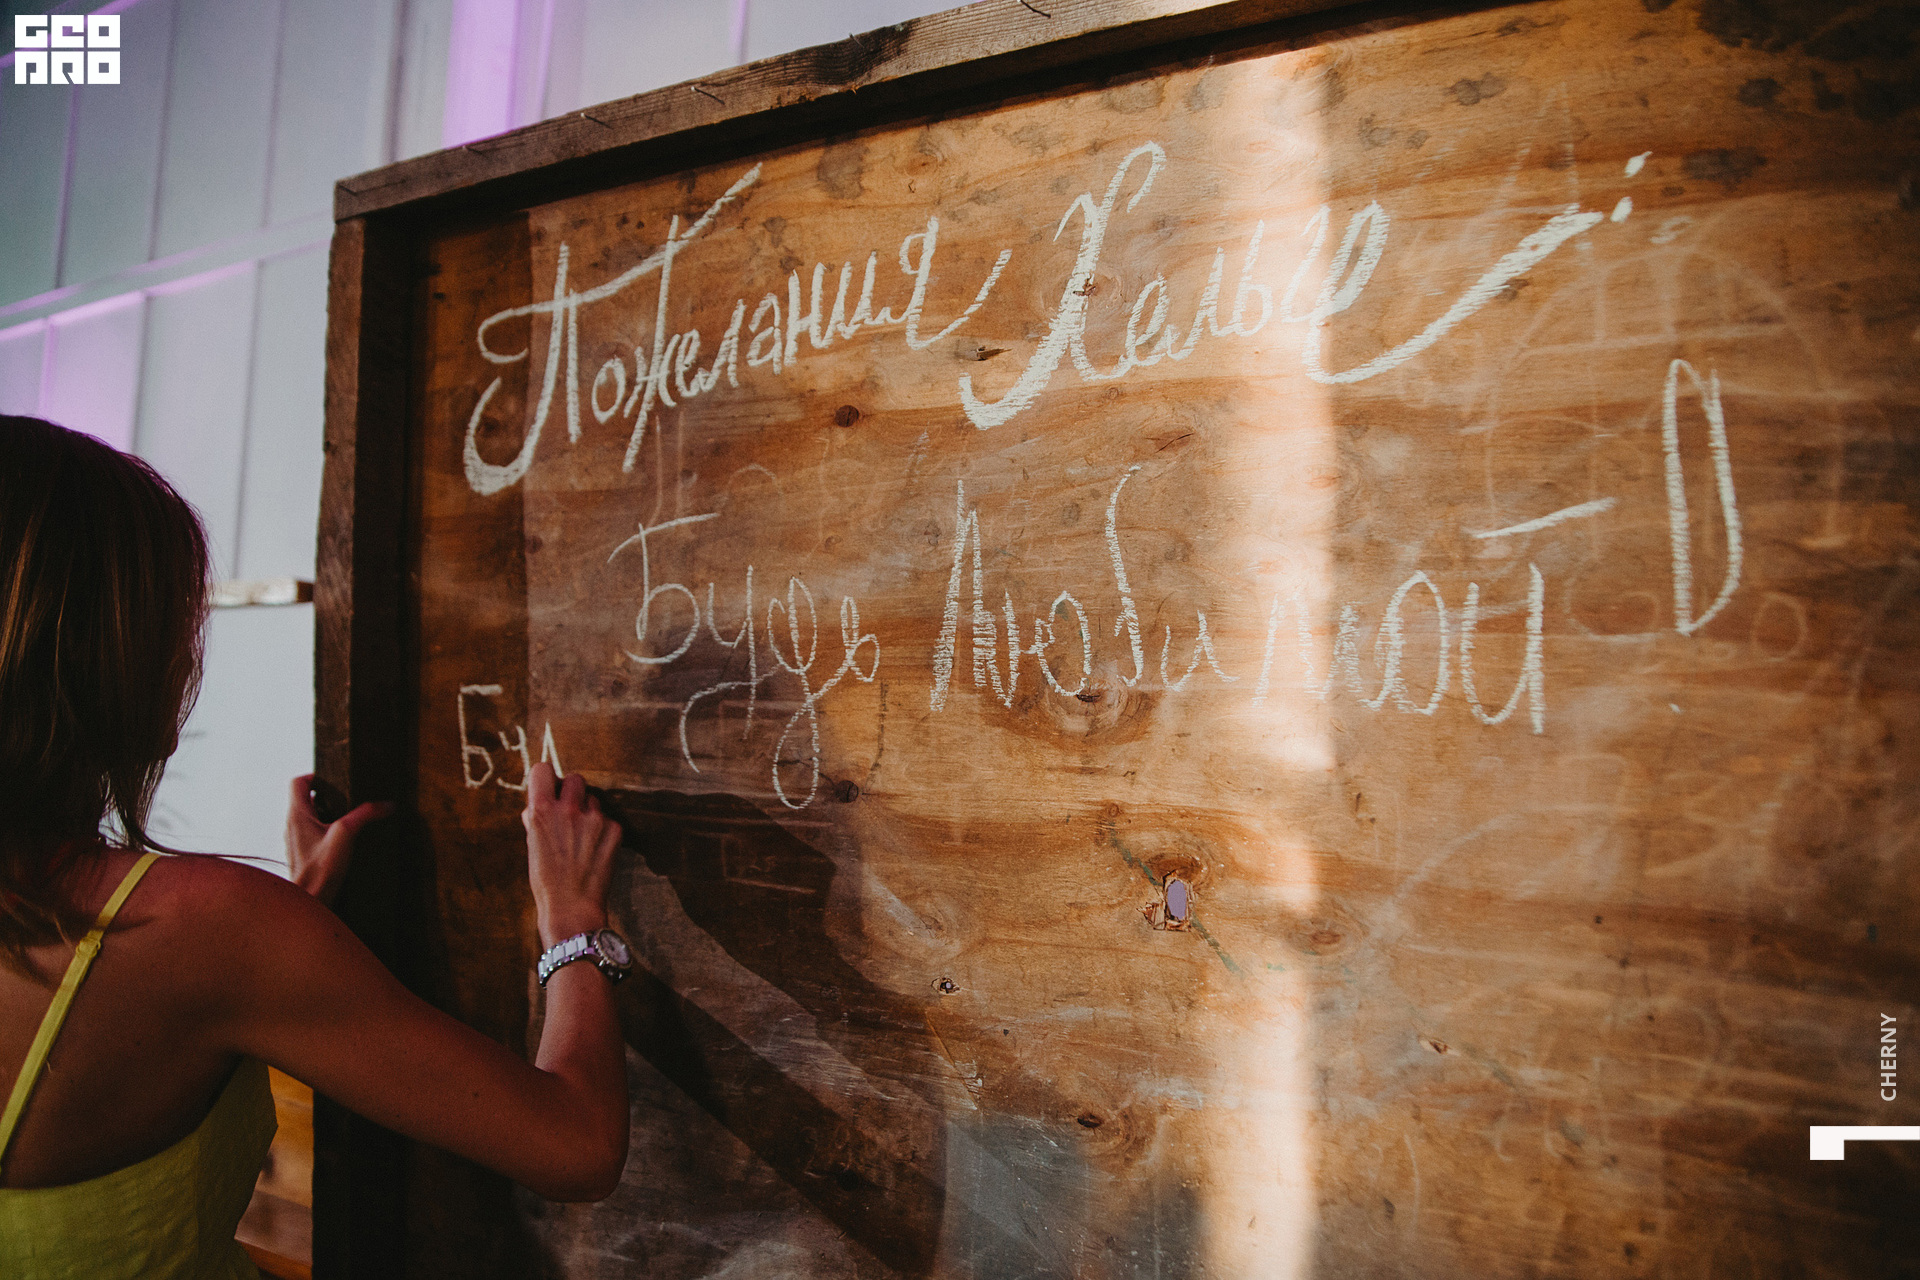 GEO
PRO
Пожелания Хельге:
Будь Любимой!
Буд
CHERNY